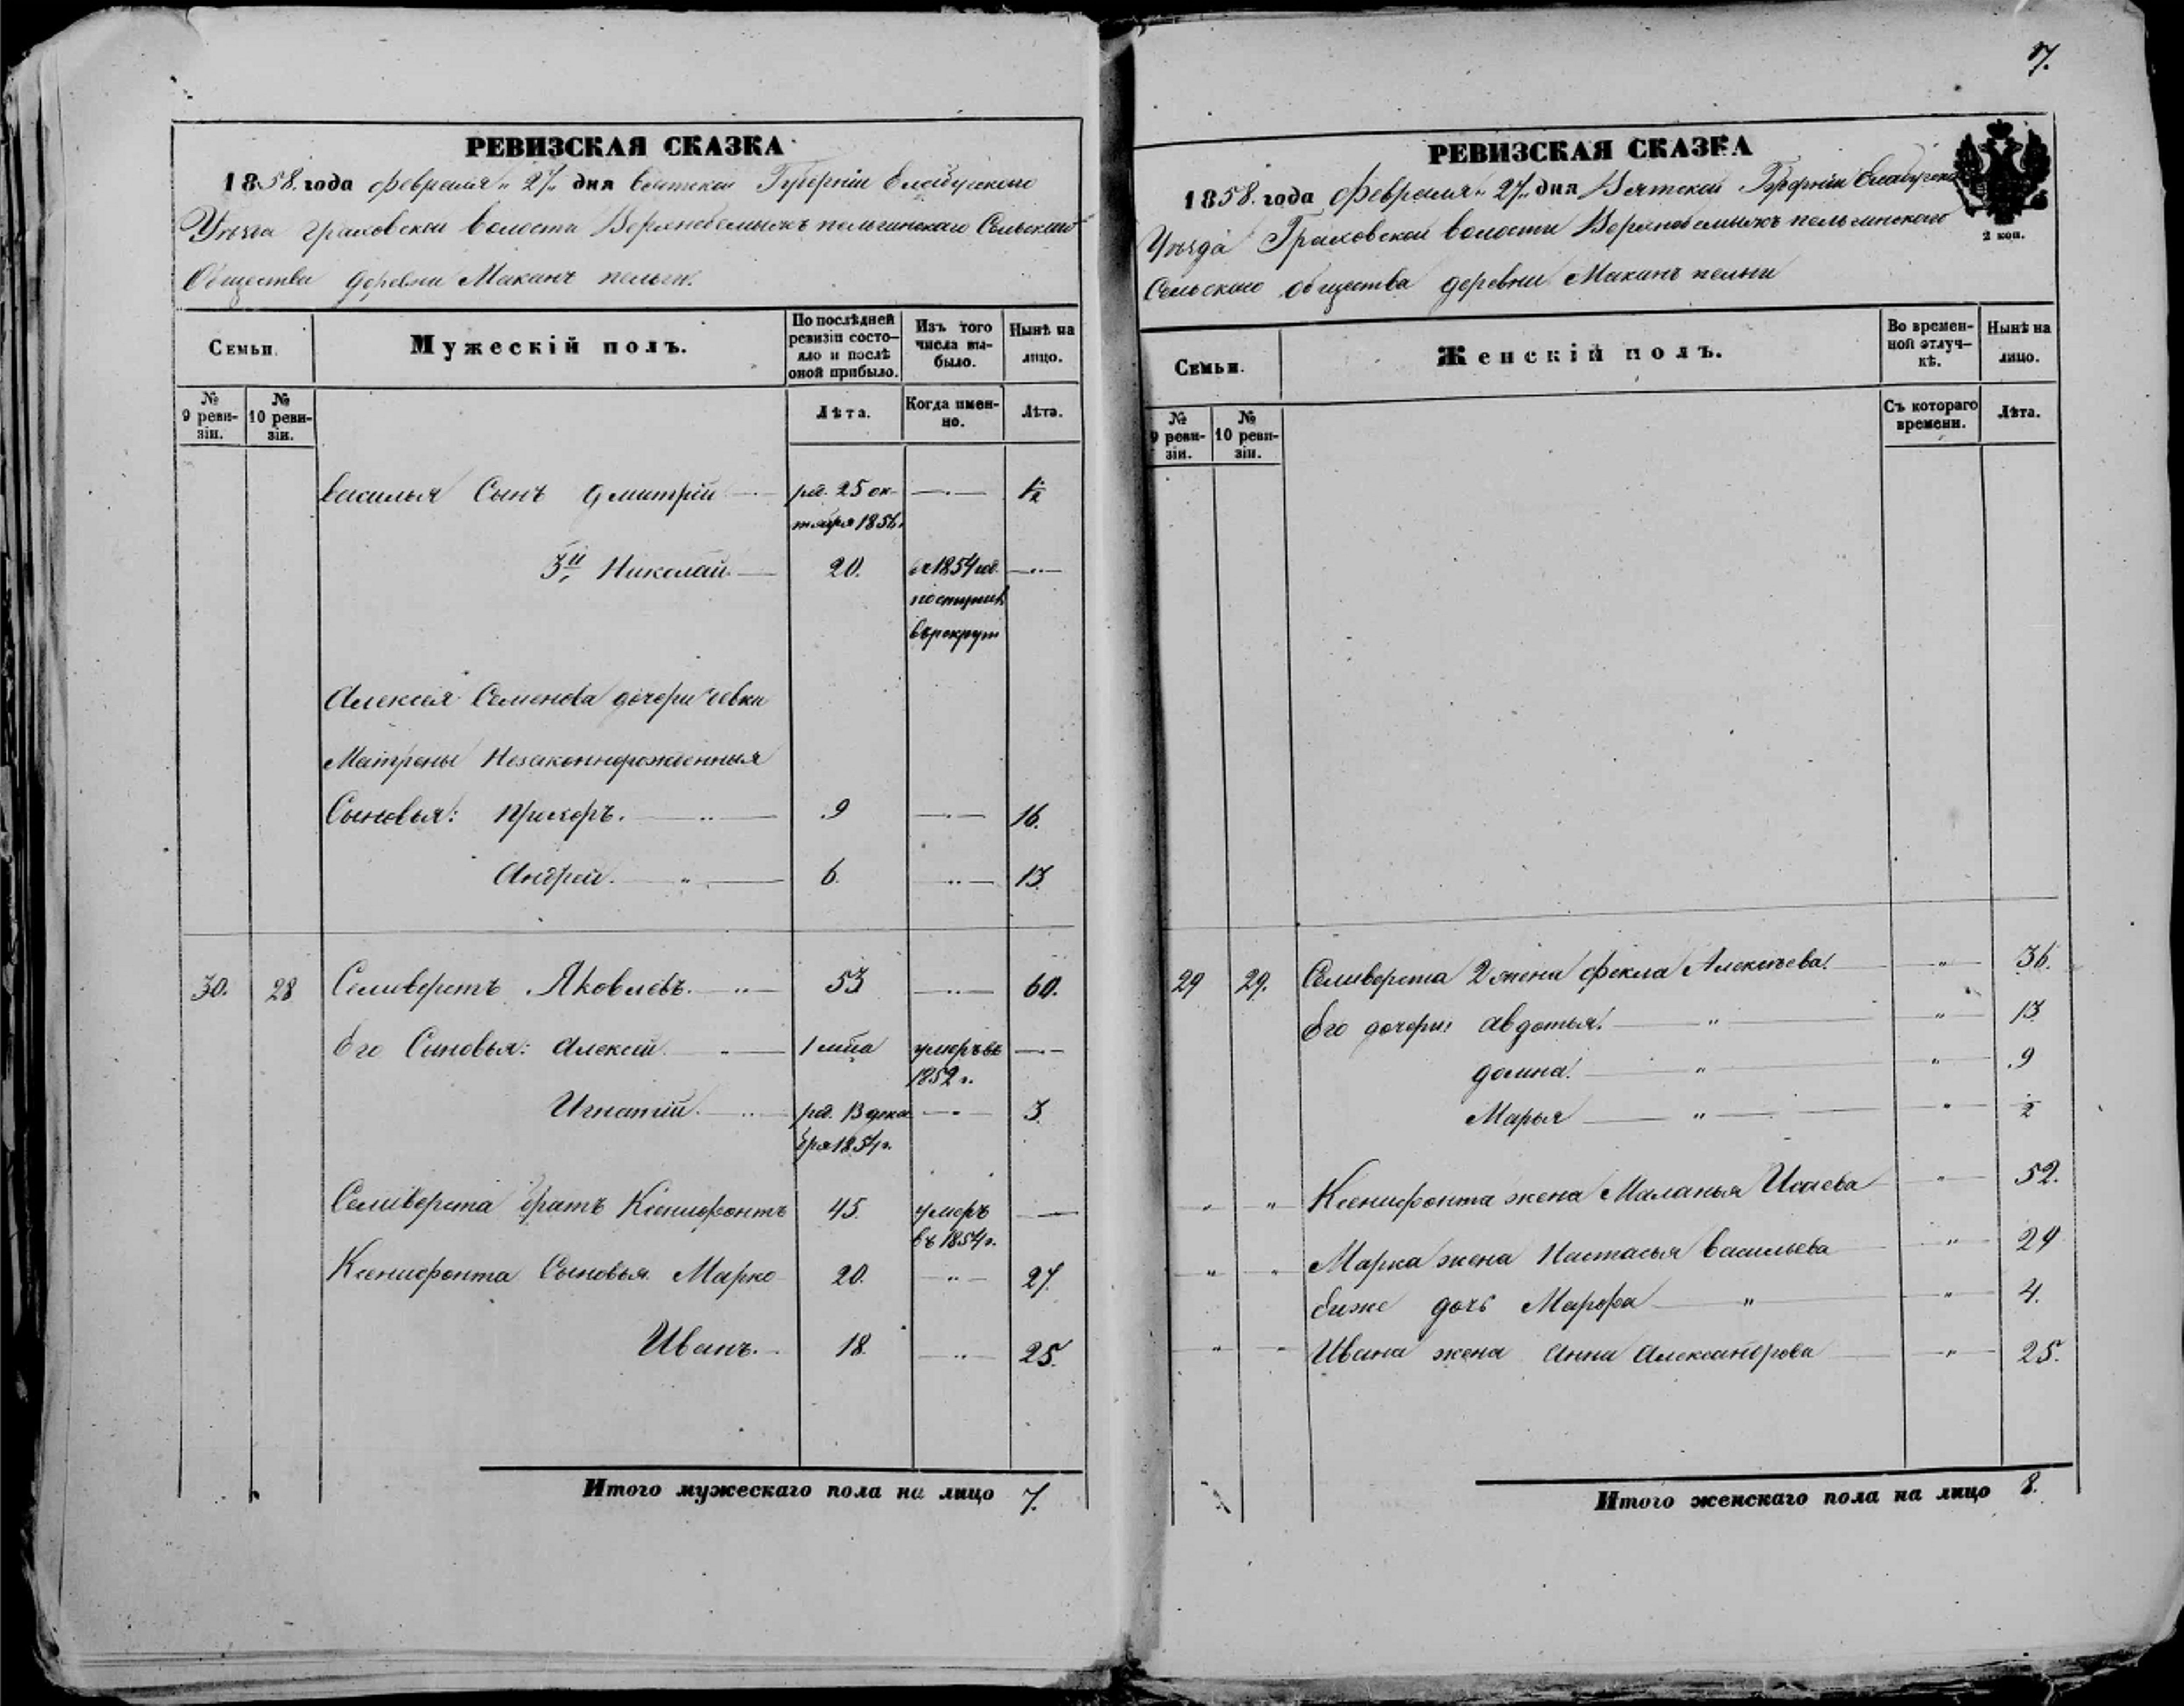 7.
РЕВИЗСКАЯ СКАЗКА
1858. года февраля „ 27 „ дня Вятской Губерніи Елабужского
Уѣзда Граховской волости Сельского
Общества деревни Маканъ пельги.
Семьи.
Мужескій полъ.
По послѣдней ревизіи состояло и послѣ оной прибыло.
Изъ того числа выбыло.
Нынѣ на лицо.
№ 9 ревизіи.
№ 10 ревизіи.
Лѣта.
Когда именно.
Лѣта.
Василья Сынъ Дмитрій — род. 25 ок- — 1/2
тября 1856.
3й Николай — 20. въ 1854 год. —
поступилъ
въ рекрут
Алексѣя Семенова дочери девки
Матрены Незаконнорожденныя
Сыновья: Прохоръ. — 9 — 16.
Андрей. — 6. — 13.
30. 28 Селиверстъ Яковлевъ. — 53 — 60.
Его Сыновья: Алексѣй — 1 мца умеръ въ —
1852 г.
Игнатій. — род. 13 дека — 3.
бря 1854 г.
Селиверста братъ Ксенофонтъ 45. умеръ —
въ 1854 г.
Ксенофонта Сыновья Марко 20. — 27.
Иванъ. — 18. — 25.
Итого мужескаго пола на лицо 7.
РЕВИЗСКАЯ СКАЗКА
1858. года Февраля „ 27 „ дня Вятской Губерніи Елабужского
2 коп.
Уѣзда Граховской волости
Сельского общества деревни Макинъ пельги
Семьи.
Женскій полъ.
Во временной отлучкѣ.
Нынѣ на лицо.
№ 9 ревизіи.
№ 10 ревизіи.
Съ котораго времени.
Лѣта.
29 29. Селиверста 2 жена Фекла Алексѣева. — „ — 36.
Его дочери: Авдотья. — „ — „ — 13
Домна. — „ — „ — 9
Марья — „ — „ — 1/2
„ „ Ксенофонта жена Маланья Исаева „ — 52.
„ „ Марка жена Настасья Васильева — „ — 29
Ихже дочь Марфа — „ — „ — 4.
„ „ Ивана жена Анна Александрова — „ — 25.
Итого женскаго пола на лицо 8.